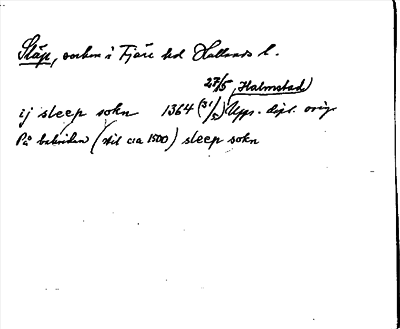 Släp, socken i Fjäre hd Hallands l.
27/5, Halmstad
ij sleep sokn 1364 (31/5) Upps. dipl. orig.
På baksidan (stil ca 1500) sleep sokn